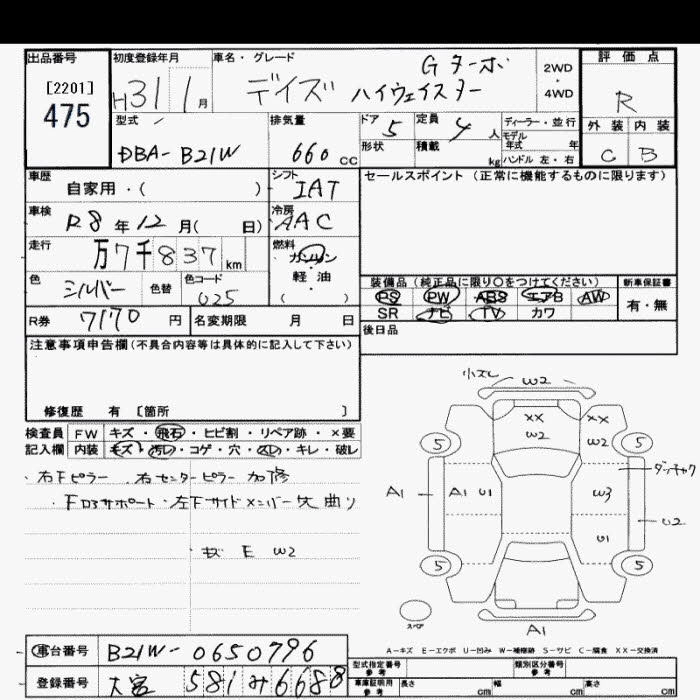 出品番号
[2201]
475
初度登録年月
H31 1月
車名・グレード
Gターボ
デイズ ハイウェイスター
2WD
・
4WD
評価点
R
外装 内装
C B
型式
DBA-B21W
排気量
660 CC
ドア 5
形状
定員 4人
積載 kg
ディーラー・並行
モデル年式 年
ハンドル 左・右
車歴
自家用・( )
シフト
IAT
車検
R8年12月( 日)
冷房
AAC
走行
万7千837km
燃料
ガソリン
・
軽油
( )
色
シルバー
色替
色コード
025
R券 7170円
名変期限 月 日
セールスポイント (正常に機能するものに限ります)
装備品 (純正品に限り○をつけてください)
PS PW ABS エアB AW
SR ナビ TV カワ
新車保証書
有・無
後日品
注意事項申告欄(不具合内容等は具体的に記入して下さい)
修復歴 有 [箇所 ]
検査員記入欄
FW キズ・飛石・ヒビ割・リペア跡・×要
内装 キズ・汚レ・コゲ・穴・スレ・キレ・破レ
右Fピラー 右センターピラー 加修
Fロアサポート・左下サイドメンバー 欠 曲り
E W2
小ズレ
W2
XX
W2
XX
W2
5 5
A1 A1 U1 W3
U2
U1
5 5
スペア
A1
A-キズ E-エクボ U-凹み W-補修跡 S-サビ C-腐食 XX-交換済
車台番号 B21W-0650796
登録番号 大宮 581 み 6688
型式指定番号
参考
類別区分番号
参考
車庫証明用
参考
長さ cm
幅 cm
高さ cm